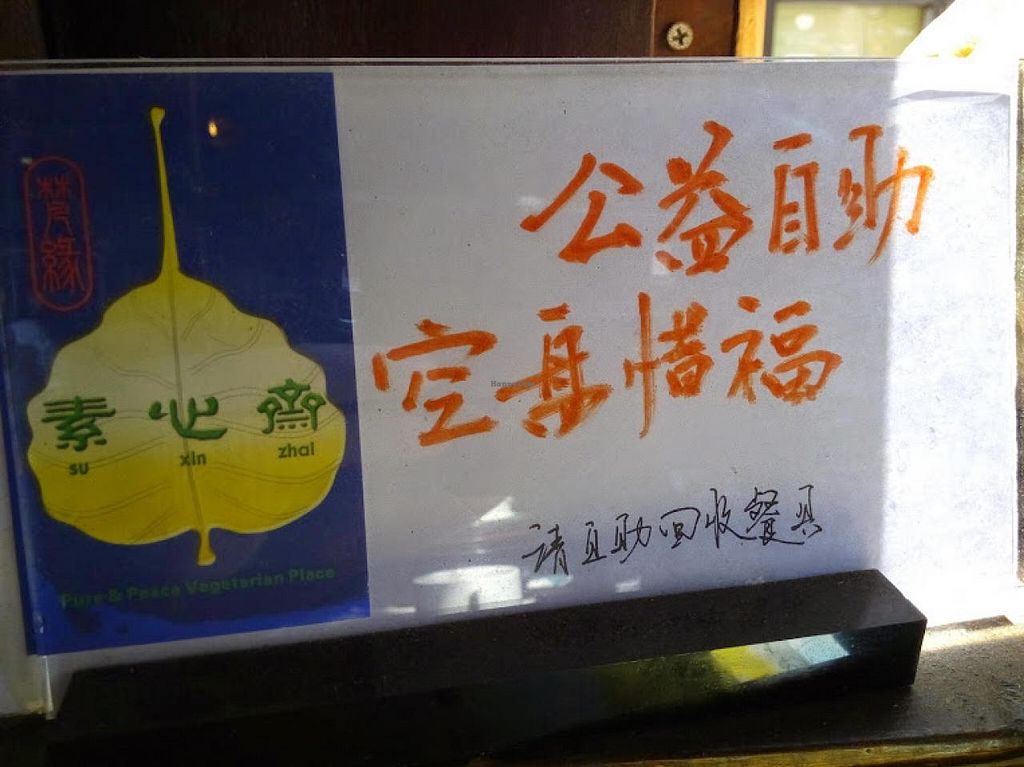 梵緣
素心齋
su xin zhai
Pure & Peace Vegetarian Place
公益自助
空具惜福
请自助回收餐具